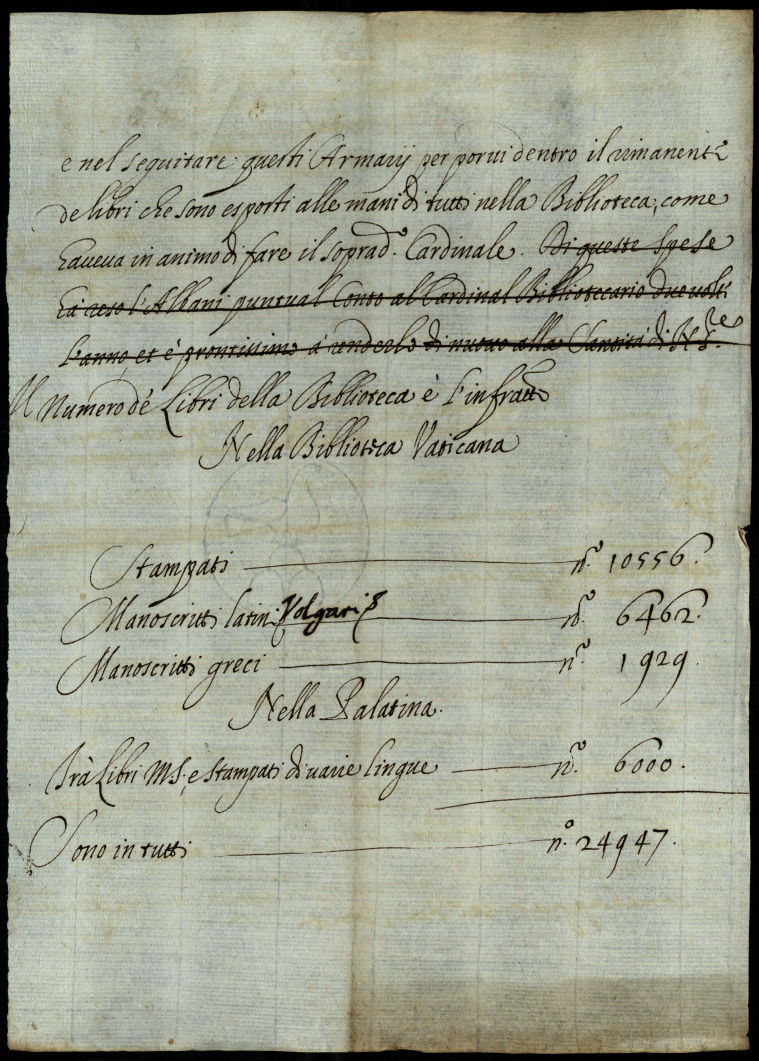 e nel seguitare questi Armarij per porui dentro il rimanente
de libri che sono esposti alle mani di tutti nella Biblioteca, come
haueua in animo di fare il soprad.º Cardinale. Di queste spese
hà reso l'Albani puntual Conto al Cardinal Bibliotecario due uolte
l'anno et è prontissimo à renderlo di nuouo alla Santità di N. S.re
Il Numero de Libri della Biblioteca è l'infratto
Nella Biblioteca Vaticana
Stampati n.º 10556.
Manoscritti latini Volgari n.º 6462.
Manoscritti greci n.º 1929.
Nella Palatina.
Trà Libri MS, e stampati di uarie lingue n.º 6000.
Sono in tutti n.º 24947.